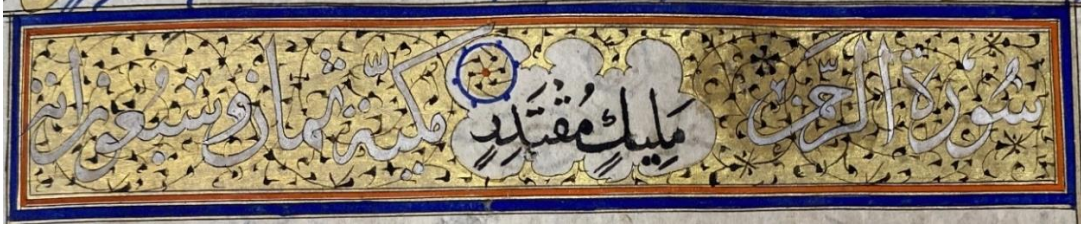 سُورَة الرَّحمن مَلِيكٍ مُقْتَدِرٍ مكيّة ثمان وسبعون اية